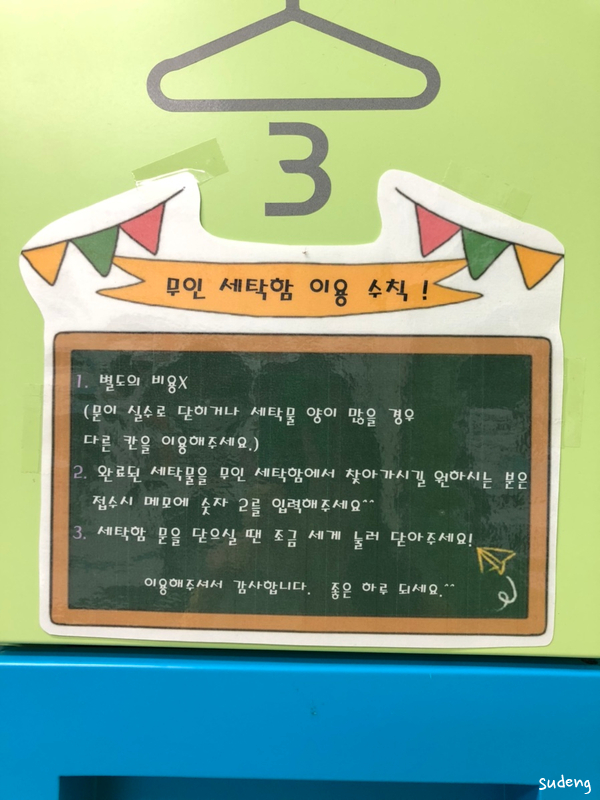 3
무인 세탁함 이용 수칙 !
1. 별도의 비용X
(문이 실수로 닫히거나 세탁물 양이 많을 경우
다른 칸을 이용해주세요.)
2. 완료된 세탁물을 무인 세탁함에서 찾아가시길 원하시는 분은
접수시 메모에 숫자 2를 입력해주세요^^
3. 세탁함 문을 닫으실 땐 조금 세게 눌러 닫아주세요!
이용해주셔서 감사합니다. 좋은 하루 되세요.^^
Sudeng